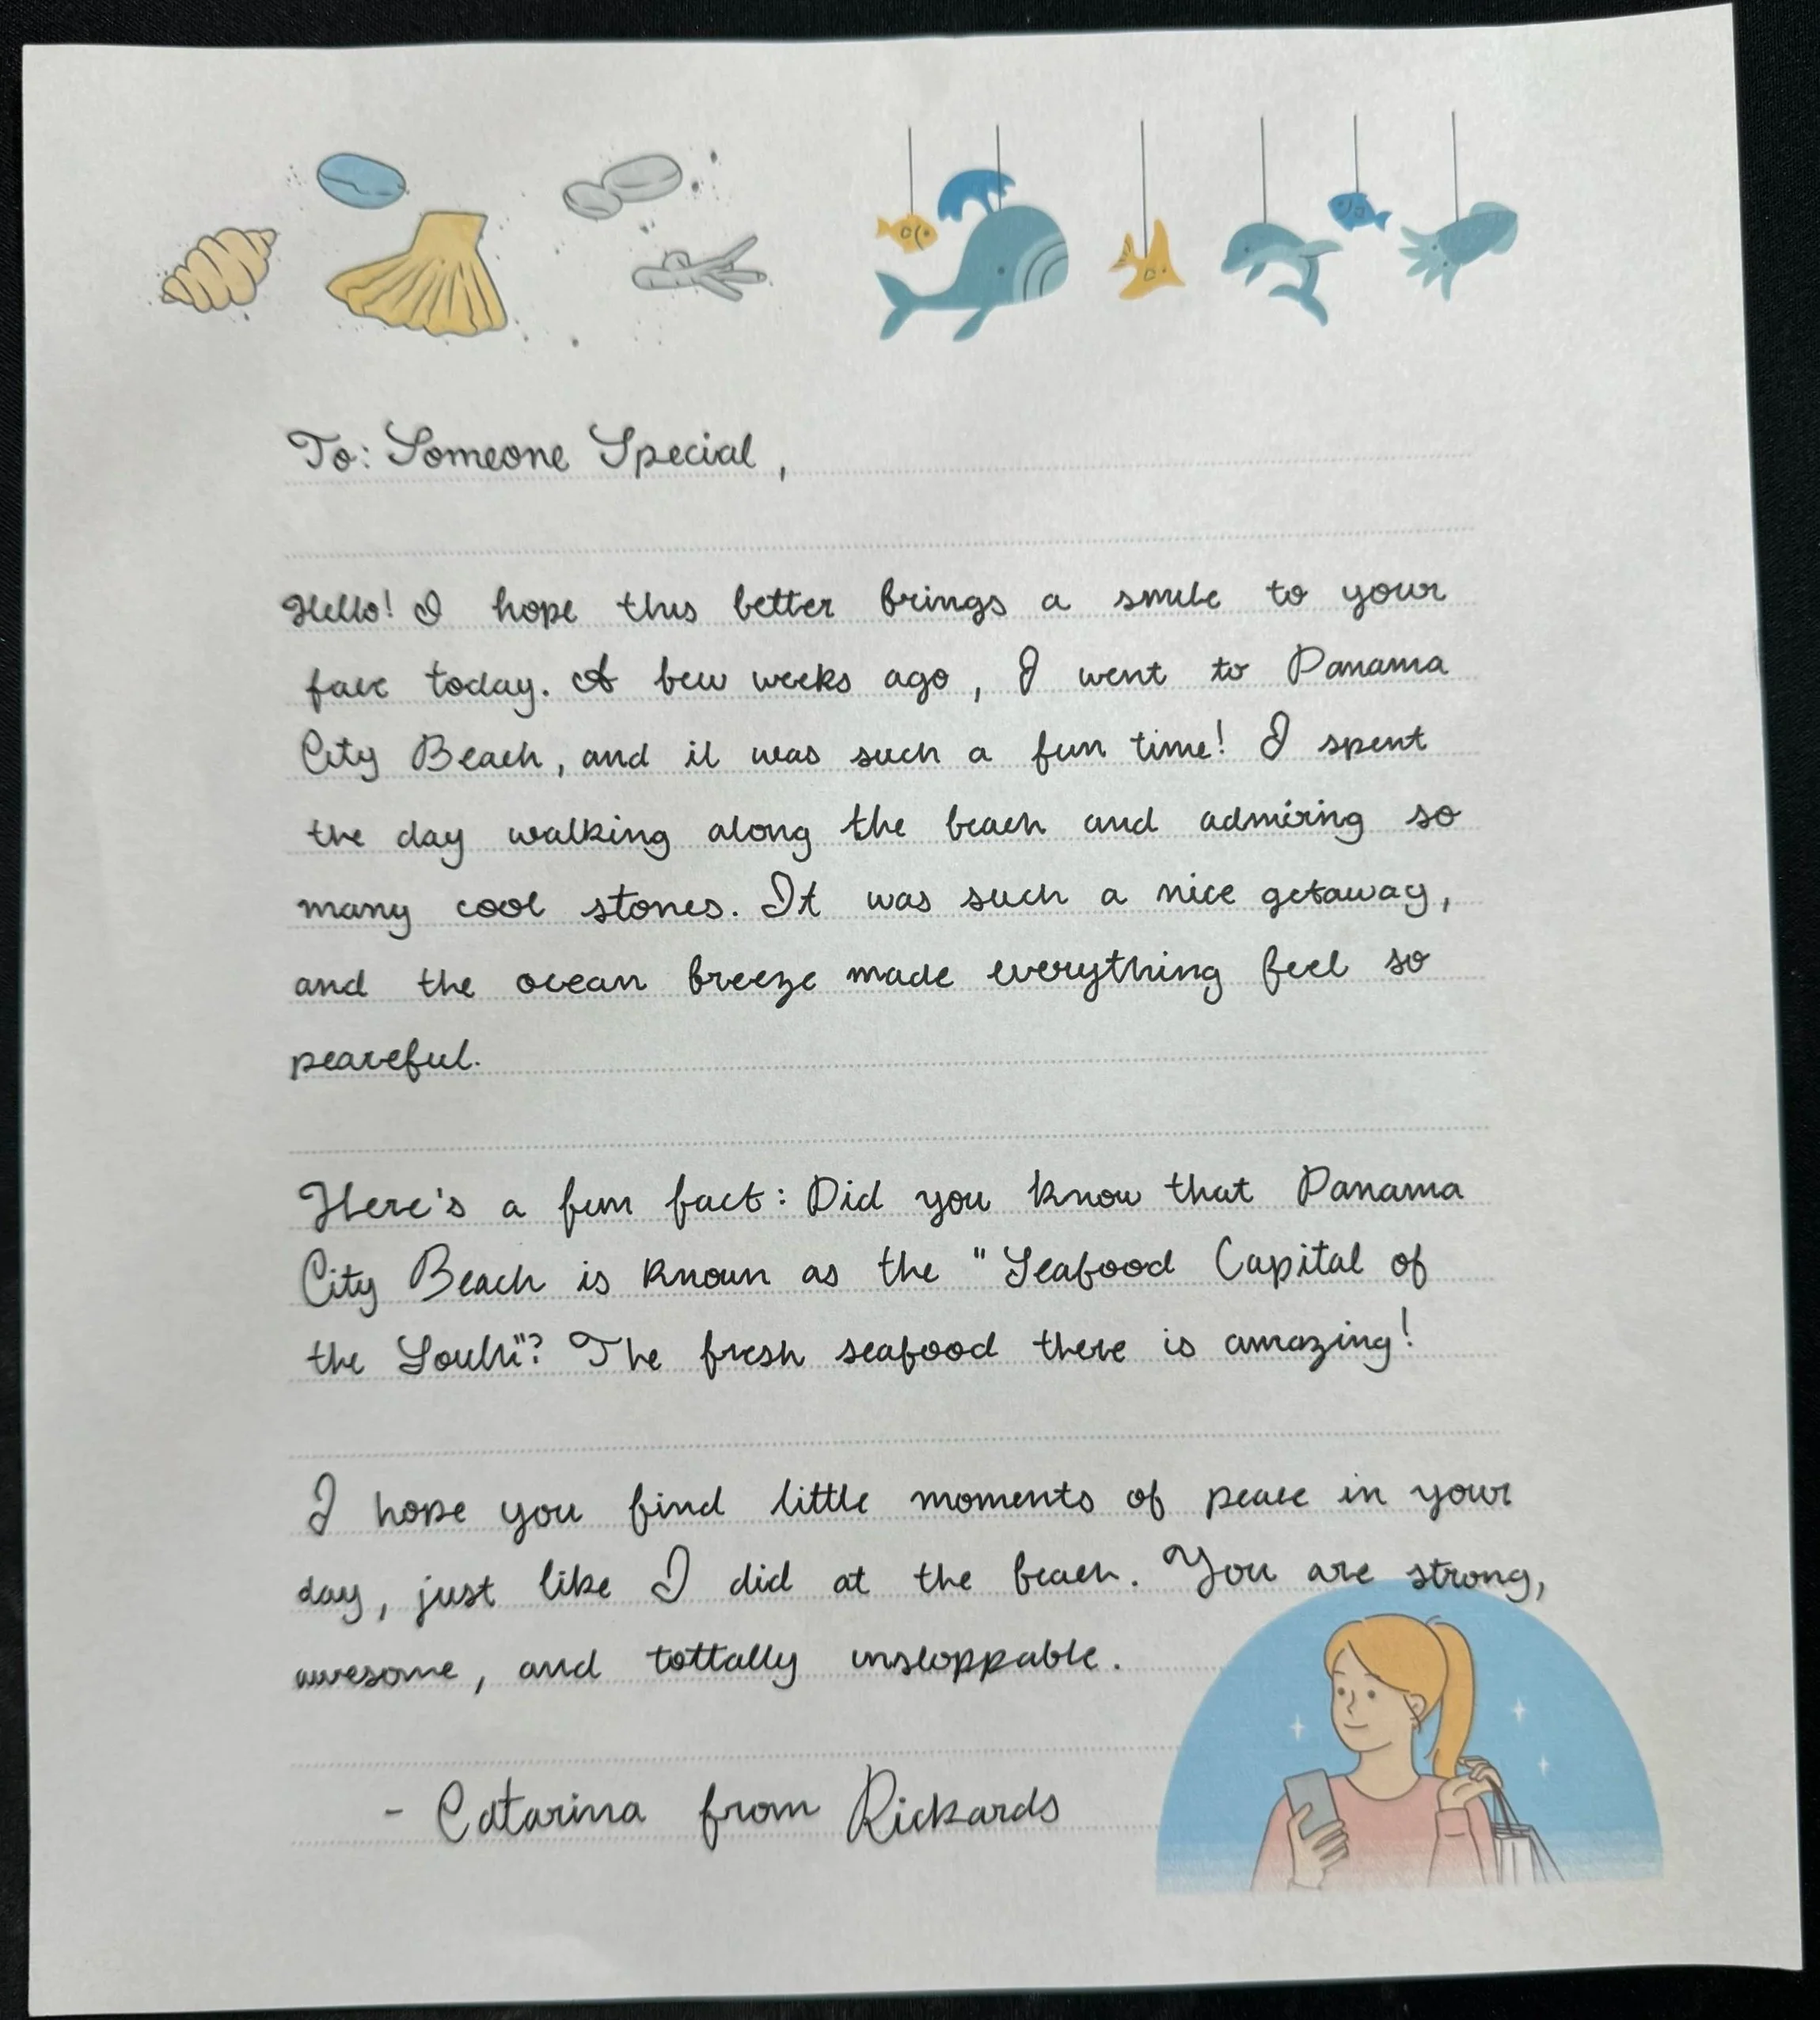 To: Someone Special,
Hello! I hope this better brings a smile to your
face today. A bew weeks ago, I went to Panama
City Beach, and it was such a fun time! I spent
the day walking along the beach and admiring so
many cool stones. It was such a nice getaway,
and the ocean breeze made everything feel so
peaceful.
Here's a fun fact: Did you know that Panama
City Beach is known as the "Seafood Capital of
the South"? The fresh seafood there is amazing!
I hope you find little moments of peace in your
day, just like I did at the beach. You are strong,
awesome, and tottally unstoppable.
- Catarina from Rickards